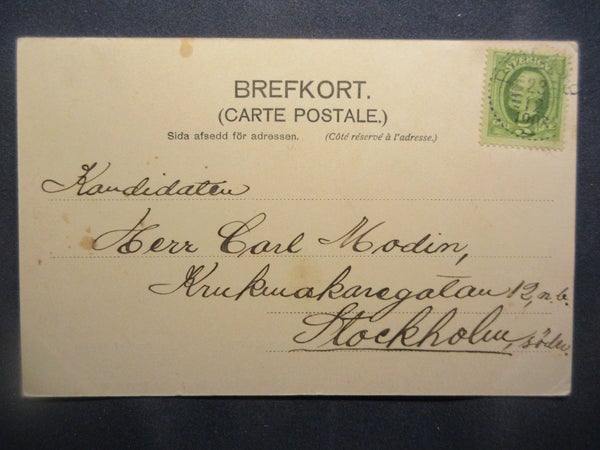 BREFKORT.
(CARTE POSTALE.)
Sida afsedd för adressen. (Côté réservé à l'adresse.)
SVERIGE
23
12
1903
Kandidaten
Herr Carl Modin,
Krukmakaregatan 12, n.b.
Stockholm, söder.